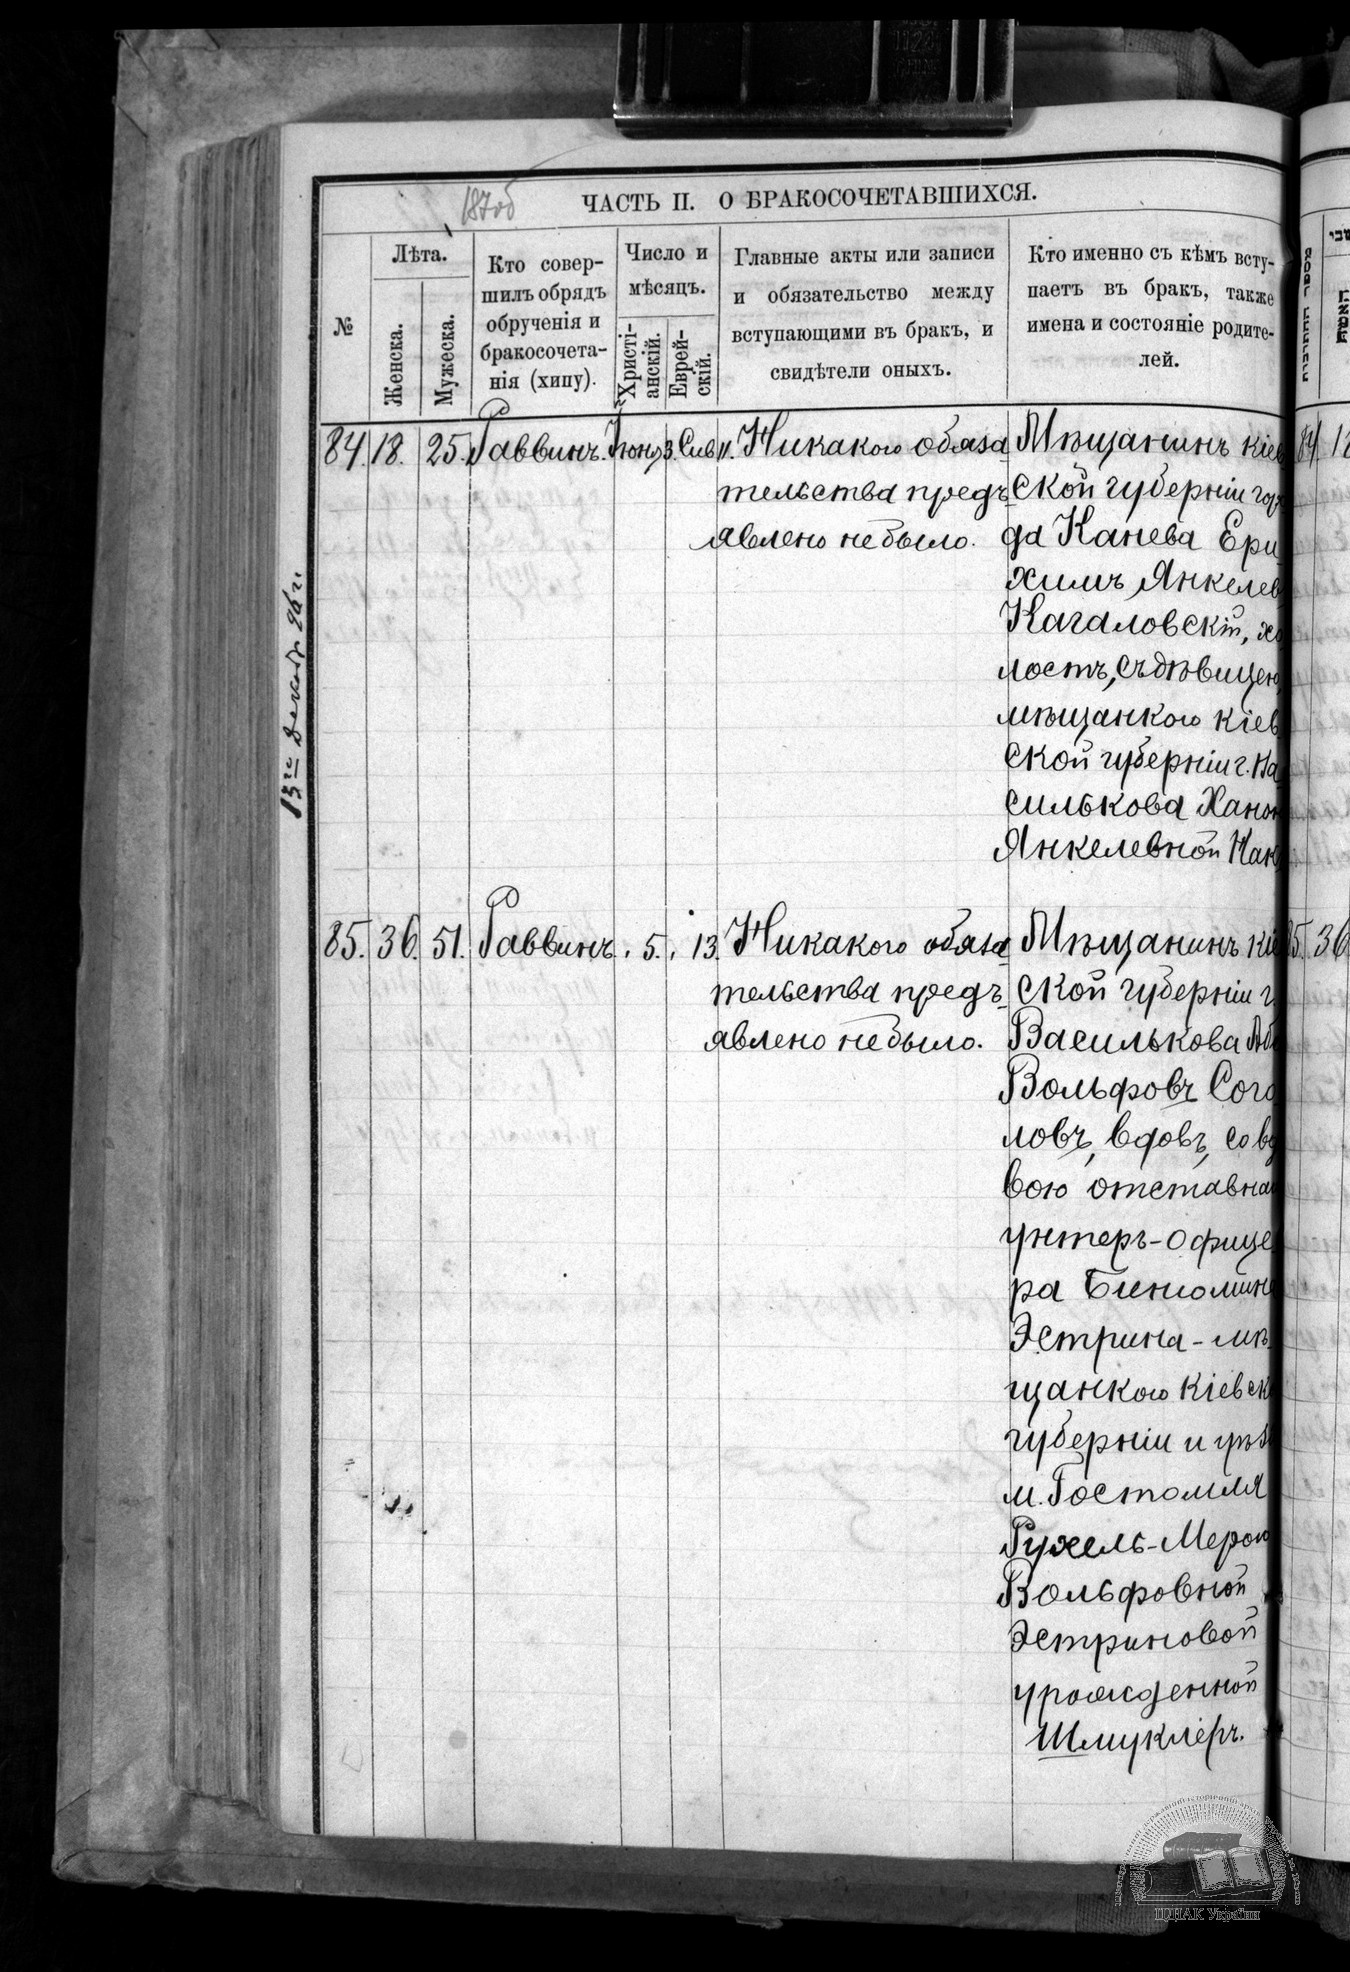 187об
ЧАСТЬ II. О БРАКОСОЧЕТАВШИХСЯ.
№
Лѣта.
Женска.
Мужеска.
Кто совер-
шилъ обрядъ
обрученія и
бракосочета-
нія (хипу).
Число и
мѣсяцъ.
Христі-
анскій.
Еврей-
скій.
Главные акты или записи
и обязательство между
вступающими въ бракъ, и
свидѣтели оныхъ.
Кто именно съ кѣмъ всту-
паетъ въ бракъ, также
имена и состояніе родите-
лей.
84. 18. 25. Раввинъ. Іюня 3. Сив 11. Никакого обяза
тельства предъ
явлено не было.
Мѣщанинъ Кіев
ской губерніи горо
да Канева Еру
химъ Янкелев
Кагаловскій, хо
лостъ, съ дѣвицею,
мѣщанкою Кіев
ской губерніи г. Ва
силькова Ханою
Янкелевной Как
13го Декабр 96 г.
85. 36. 51. Раввинъ. „ 5. „ 13. Никакого обяза
тельства предъ
явлено не было.
Мѣщанинъ Кіе
ской губерніи г.
Василькова Аб
Вольфовъ Сого
ловъ, вдовъ, со вд
вою отставна
унтеръ-офице
ра Биніомина
Эстрина - мѣ
щанкою Кіевск
губерніи и уѣз
м. Гостомля
Рухель-Мерою
Вольфовной
Эстриновой
урожденной
Шмуклеръ.
84. 18
85. 36
ЦДІАК України